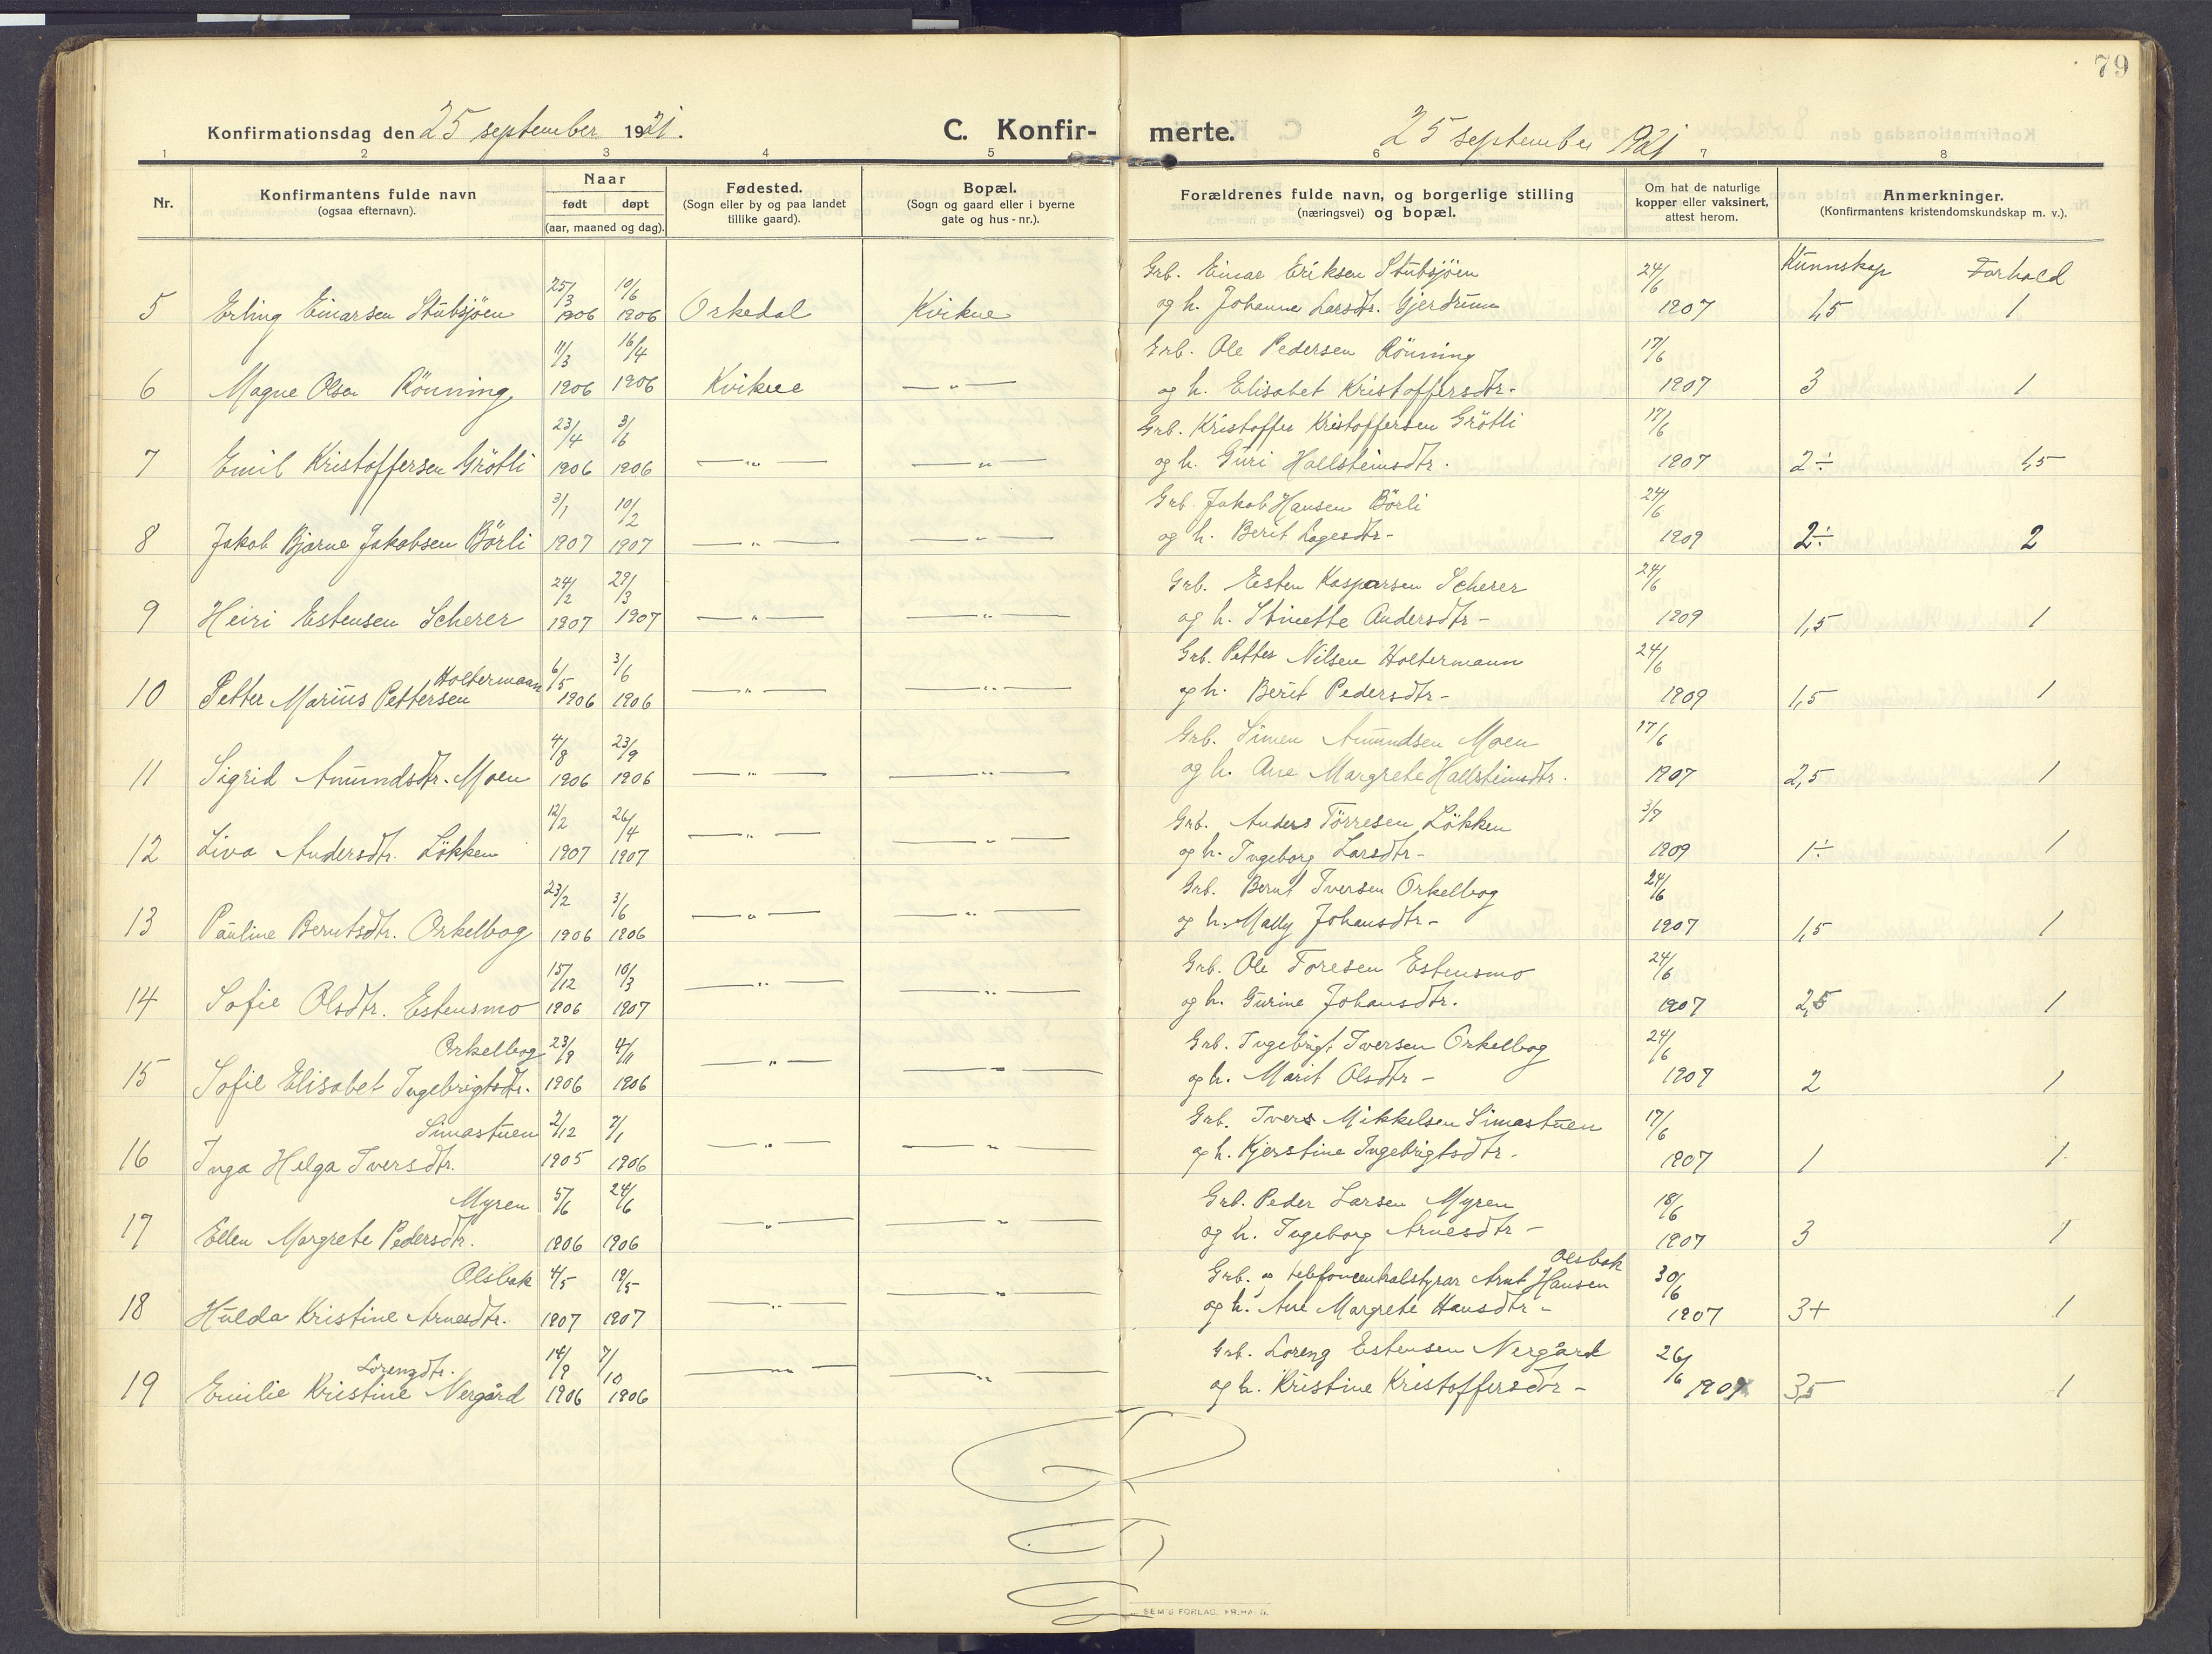 79
Konfirmationsdag den 25 september 1921.
C. Konfir-
merte.
25 september 1921
1 2 3 4 5 6 7 8
Nr.
Konfirmantens fulde navn
(ogsaa efternavn).
Naar
født døpt
(aar, maaned og dag).
Fødested.
(Sogn eller by og paa landet
tillike gaard).
Bopæl.
(Sogn og gaard eller i byerne
gate og hus-nr.).
Forældrenes fulde navn, og borgerlige stilling
(næringsvei) og bopæl.
Om hat de naturlige
kopper eller vaksinert,
attest herom.
Anmerkninger.
(Konfirmantens kristendomskundskap m. v.).
Kunnskap Forhold
25/3 10/6 Grb. Einar Eriksen Stubsjöen 24/6
5 Erling Einarsen Stubsjöen 1906 1906 Orkedal Kvikne og h. Johanne Larsdtr. Gjerdrum 1907 1,5 1
11/3 16/4 Grb. Ole Pedersen Rönning 17/6
6 Magne Olsen Rönning 1906 1906 Kvikne — " — og h. Elisabet Kristoffersdtr. 1907 3 1
23/4 3/6 Grb. Kristoffer Kristoffersen Grötli 17/6
7 Emil Kristoffersen Grötli 1906 1906 — " — — " — og h. Guri Hallsteinsdtr. 1907 2÷ 1,5
3/1 10/2 Grb. Jakob Hansen Börli 24/6
8 Jakob Bjarne Jakobsen Börli 1907 1907 — " — — " — og h. Berit Lagesdtr- 1909 2÷ 2
24/2 29/3 Grb. Esten Kasparsen Scherer 24/6
9 Heiri Estensen Scherer 1907 1907 — " — — " — og h. Stinette Andersdtr- 1909 1,5 1
Holtermann 6/5 3/6 Grb. Petter Nilsen Holtermann 24/6
10 Petter Marius Pettersen 1906 1906 — " — — " — og h. Berit Pedersdtr- 1909 1,5 1
4/8 23/9 Grb. Simen Amundsen Moen 17/6
11 Sigrid Amundsdtr. Moen 1906 1906 — " — — " — og h. Ane Margrete Hallsteinsdtr. 1907 2,5 1
12/2 26/4 Grb. Anders Törresen Lökken 3/7
12 Liva Andersdtr. Lökken 1907 1907 — " — — " — og h. Ingeborg Larsdtr- 1909 1÷ 1
23/2 3/6 Grb. Bernt Iversen Orkelbog 24/6
13 Pauline Berntsdtr. Orkelbog 1906 1906 — " — — " — og h. Mally Johansdtr- 1907 1,5 1
15/12 10/3 Grb. Ole Toresen Estensmo 24/6
14 Sofie Olsdtr. Estensmo 1906 1907 — " — — " — og h. Gurine Johansdtr. 1907 2,5 1
Orkelbog 23/9 4/11 Grb. Ingebrigt Iversen Orkelbog 24/6
15 Sofie Elisabet Ingebrigtsdtr. 1906 1906 — " — — " — og h. Marit Olsdtr- 1907 2 1
Simastuen 2/12 7/1 Grb. Iver Mikkelsen Simastuen 17/6
16 Inga Helga Iversdtr. 1905 1906 — " — — " — og h. Kjerstine Ingebrigtsdtr. 1907 1 1
Myren 5/6 24/6 Grb. Peder Larsen Myren 18/6
17 Ellen Margrete Pedersdtr. 1906 1906 — " — — " — og h. Ingeborg Arnesdtr- 1907 3 1
Olsbak
Olsbak 4/5 19/5 Grb. og telefoncentralstyrar Arnt Hansen 30/6
18 Hulda Kristine Arnesdtr. 1907 1907 — " — — " — og h. Ane Margrete Hansdtr- 1907 3+ 1
Lorenzdtr. 14/9 7/10 Grb. Loreng Estensen Nergård 26/6
19 Emilie Kristine Nergård 1906 1906 — " — — " — og h. Kristine Kristoffersdtr- 1907 3,5 1
SEM'S FORLAG, FR.HALD.